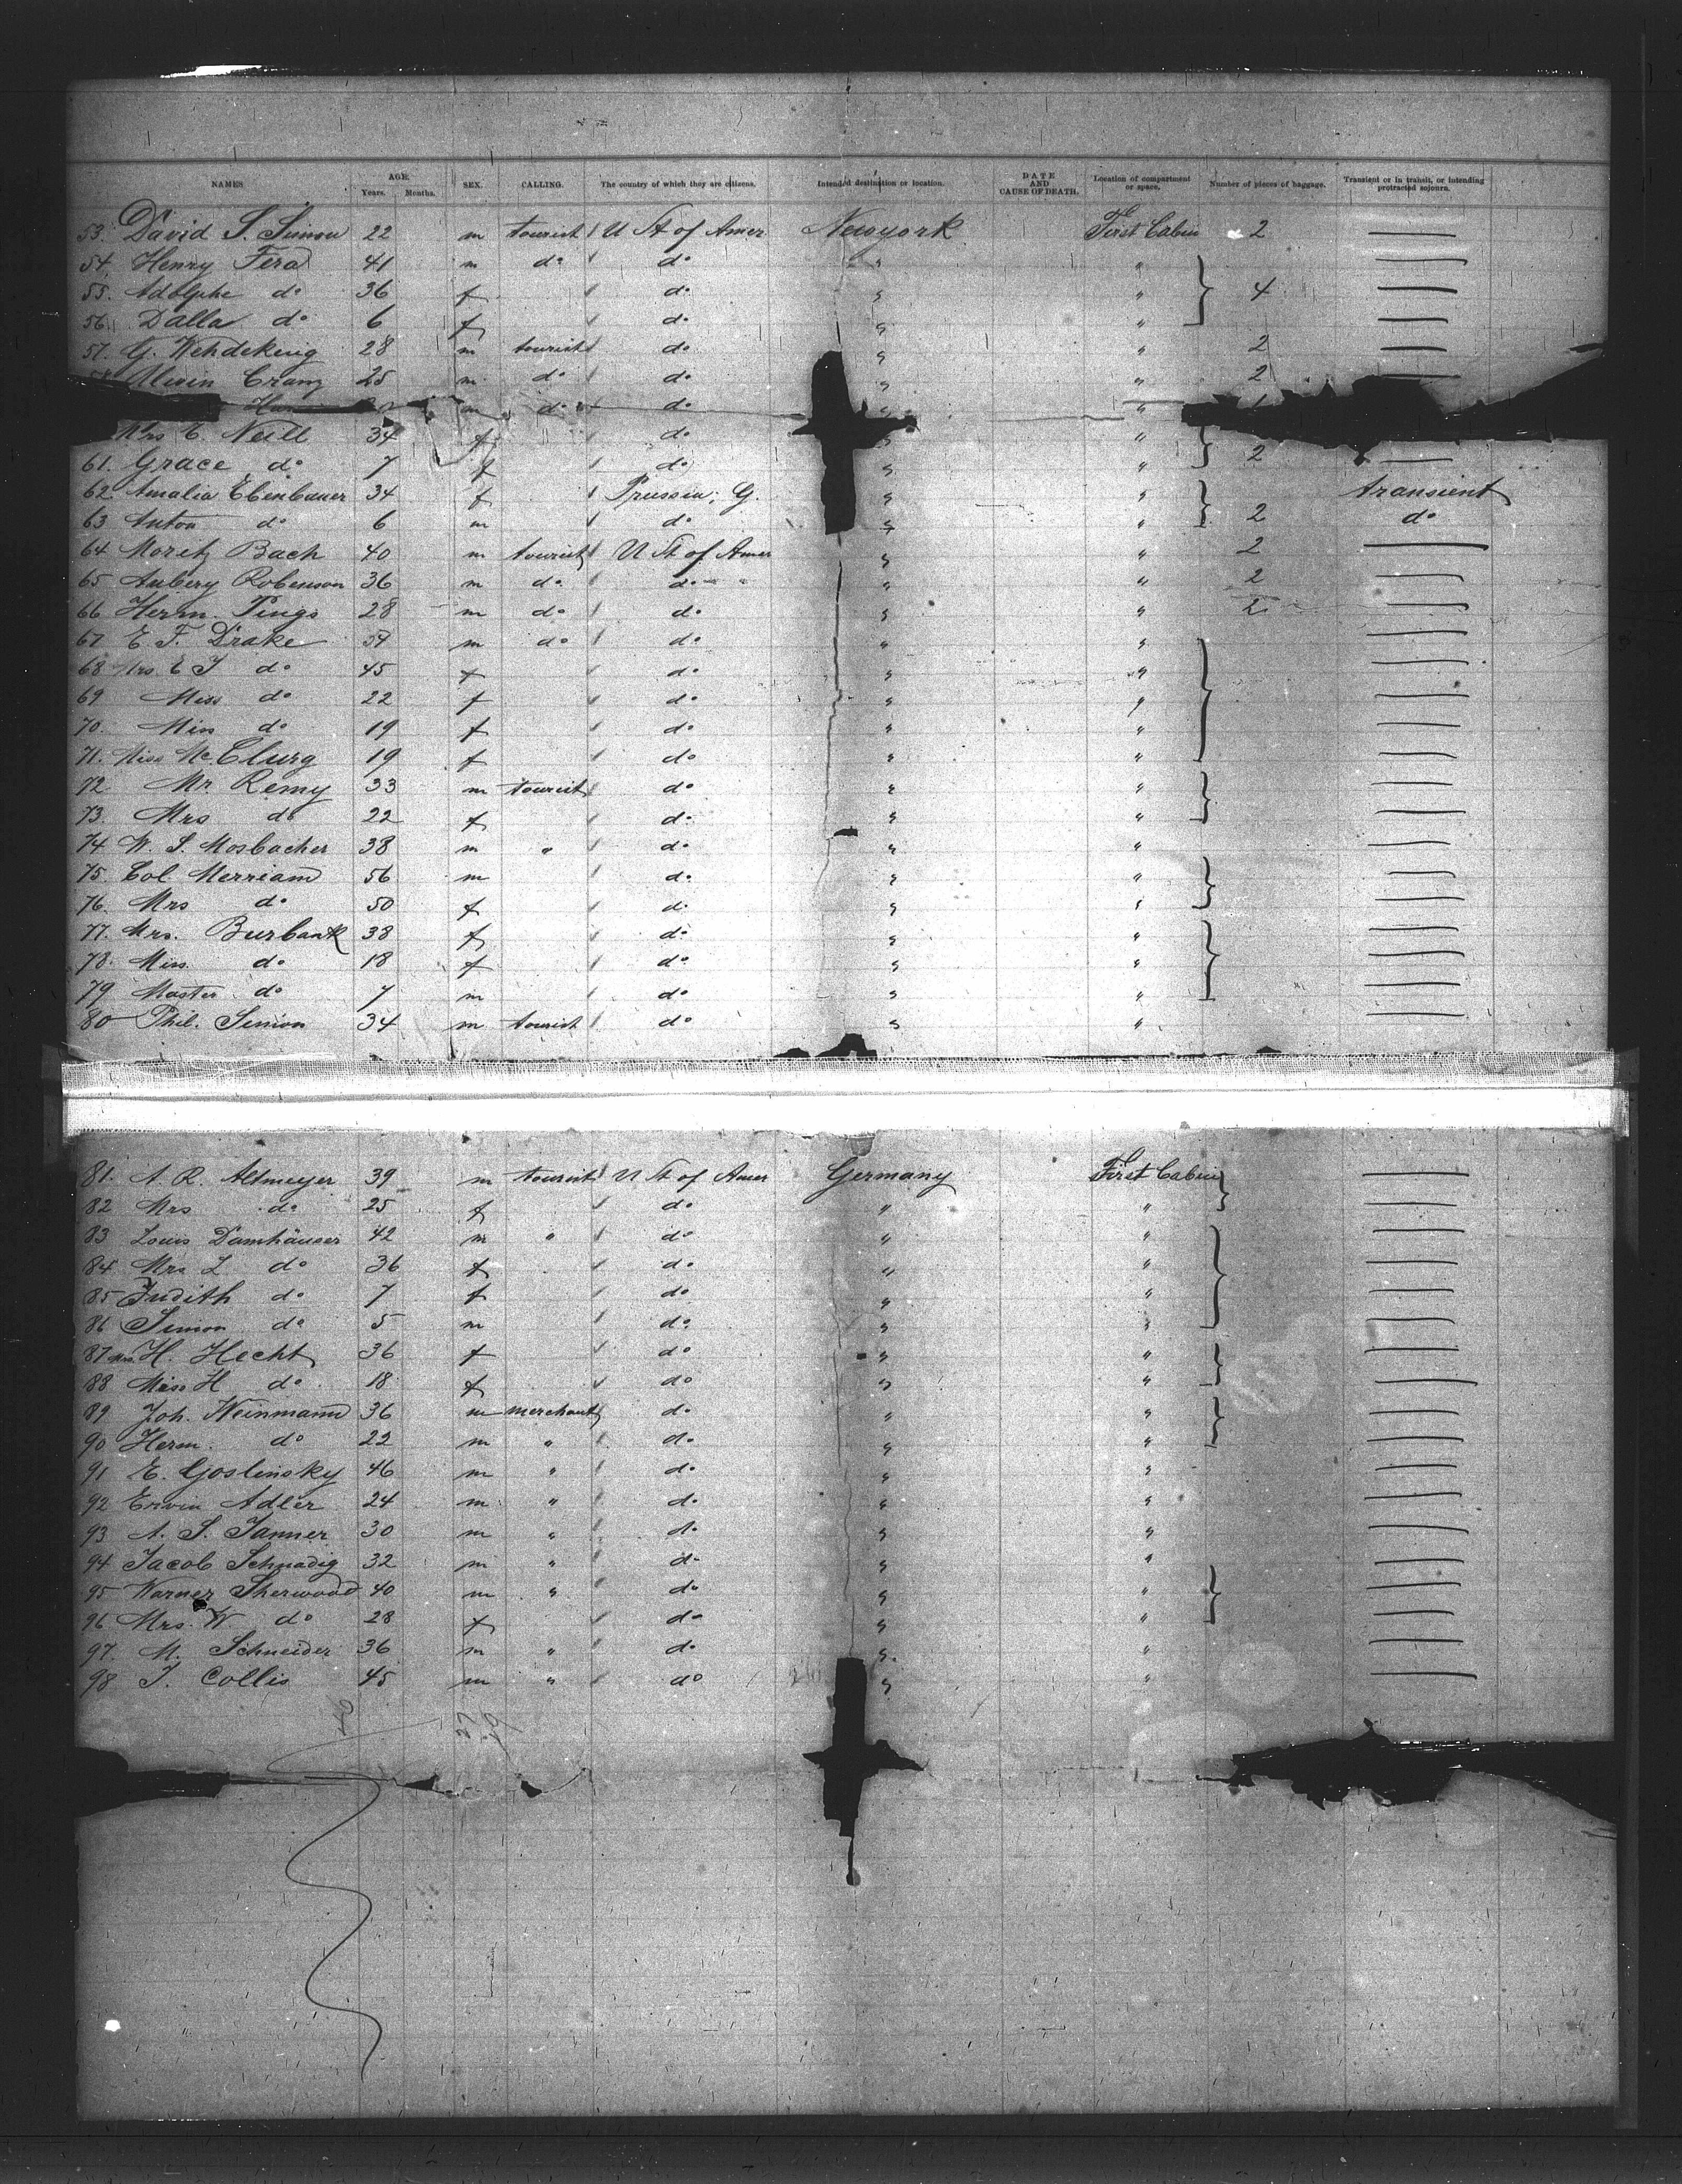 NAMES AGE. Years. Months. SEX. CALLING. The country of which they are citizens. Intended destination or location. DATE AND CAUSE OF DEATH. Location of compartment or space. Number of pieces of baggage. Transient or in transit, or intending protracted sojourn.
53. David S. Simon 22 m tourist U St of Amer Newyork First Cabin 2
54. Henry Fera 41 m do do " "
55. Adolphe do 36 f do " " 4
56 Dalla do 6 f do " "
57. G. Wehdeking 28 m tourist do " " 2
Cranz 25 m do do " " 2
m do do " "
Mrs E Neill 34 f do " "
61. Grace do 7 f do " " 2
62. Amalia Ebenbauer 34 f Prussia; G. " " transient
63 Anton do 6 m do " " 2 do
64 Moritz Bach 40 m tourist U St of Amer " " 2
65 Aubery Robenson 36 m do do " " 2
66 Herm. Pings 28 m do do " " 2
67 E. F. Drake 59 m do do " "
68 Mrs. E F do 45 f do " "
69 Miss do 22 f do " "
70. Miss do 19 f do " "
71. Miss Mc Clurg 19 f do " "
72 Mr Remy 33 m tourist do " "
73. Mrs do 22 f do " "
74 W. S. Mosbacher 38 m " do " "
75. Col. Merriam 56 m do " "
76. Mrs do 50 f do " "
77. Mrs. Burbank 38 f do " "
78. Miss. do 18 f do " "
79 Master do 7 m do " "
80 Phil. Simon 34 m tourist do " "
81. A. R. Altmeyer 39 m tourist U St of Amer Germany First Cabin
82 Mrs do 25 f do " "
83 Louis Damhäuser 42 m " do " "
84. Mrs L do 36 f do " "
85 Judith do 7 f do " "
86 Simon do 5 m do " "
87 Mrs. H. Hecht 36 f do " "
88 Miss H do 18 f do " "
89 Joh. Weinmann 36 m merchant do " "
90 Herm. do 22 m " do " "
91 E. Goslinsky 46 m " do " "
92 Erwin Adler 24 m " do " "
93 A. S. Tanner 30 m " do " "
94 Jacob Schnadig 32 m " do " "
95 Warner Sherwood 40 m " do " "
96 Mrs. W. do 28 f do " "
97. M. Schneider 36 m " do " "
98 J. Collis 45 m " do " "